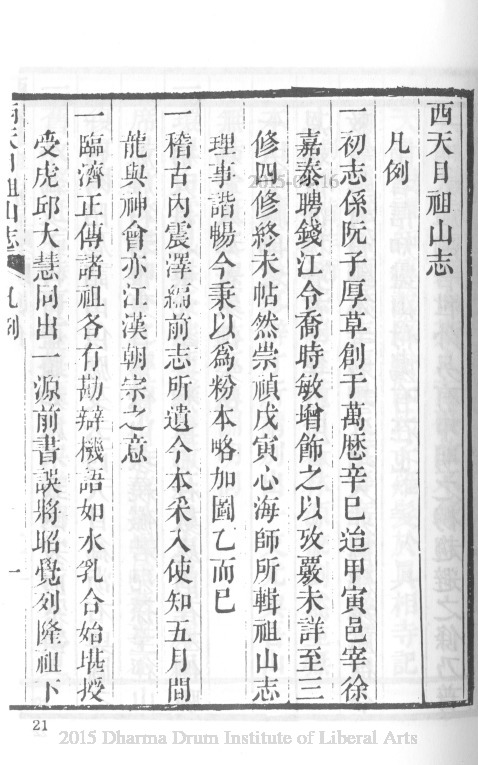 西天目祖山志
凡例
一初志係阮子厚草創于萬曆辛巳迨甲寅邑宰徐
嘉泰聘錢江令喬時敏增飾之以攷覈未詳至三
修四修終未帖然崇禎戊寅心海師所輯祖山志
理事諧暢今秉以爲粉本略加圖乙而已
一稽古內震澤編前志所遺今本采入使知五月間
龍與神會亦江漢朝宗之意
一臨濟正傳諸祖各有勘辯機語如水乳合始堪授
受虎邱大慧同出一源前書誤將昭覺列隆祖下
西天目祖山志 凡例 一
21
2015-04-16
2015 Dharma Drum Institute of Liberal Arts